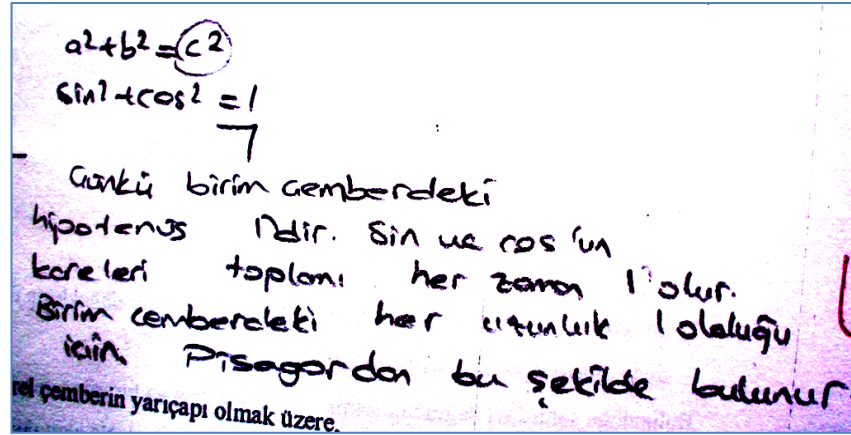 a²+b²=c²
sin²+cos²=1
Çünkü birim çemberdeki
hipotenüs 1'dir. Sin ve cos'un
kareleri toplamı her zaman 1 olur.
Birim çemberdeki her uzunluk 1 olduğu
için. Pisagordan bu şekilde bulunur.
rel çemberin yarıçapı olmak üzere,